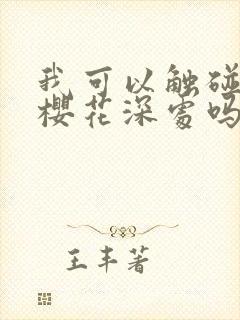 我可以触碰
樱花深处吗
王丰著